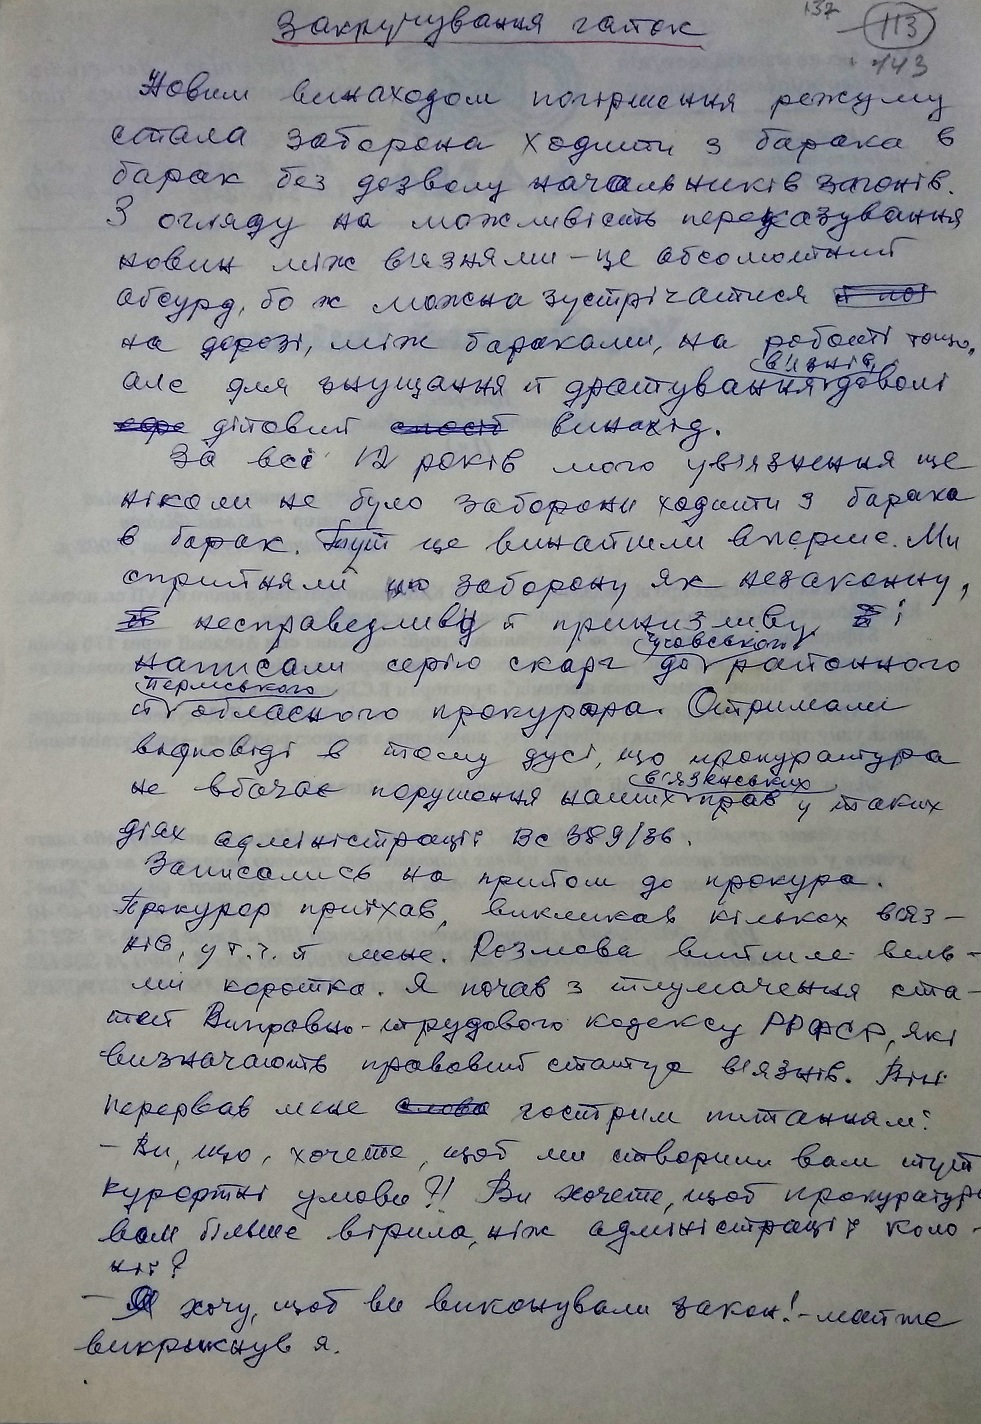 Закручування гайок
137
113
143
Новим винаходом погіршення режиму
стала заборона ходити з барака в
барак без дозволу начальників загонів.
З огляду на можливість переказування
новин між в'язнями – це абсолютний
абсурд, бо ж можна зустрічатися
на дорозі, між бараками, на роботі тощо,
в'язнів
але для знущання й дратування доволі
дійовий спосіб винахід.
За всі 12 років мого ув'язнення ще
ніколи не було заборони ходити з барака
в барак. Тут це винайшли вперше. Ми
сприйняли цю заборону як незаконну,
несправедливу й принизливу і
Чусовського
написали серію скарг до районного
Пермського
й обласного прокурора. Отримали
відповіді в тому дусі, що прокуратура
в'язенських
не вбачає порушення наших прав у таких
діях адміністрації ВС 389/36.
Записались на прийом до прокура.
Прокурор приїхав, викликав кількох в'яз-
нів, у т.ч. й мене. Розмова вийшла вель-
ми коротка. Я почав з тлумачення ста-
тей Виправно-трудового кодексу РРФСР, які
визначають правовий статус в'язнів. Він
перервав мене слова гострим питанням:
– Ви, що, хочете, щоб ми створили вам тут
курортні умови?! Ви хочете, щоб прокуратура
вам більше вірила, ніж адміністрації коло-
нії?
– Я хочу, щоб ви виконували закон! – майже
викрикнув я.